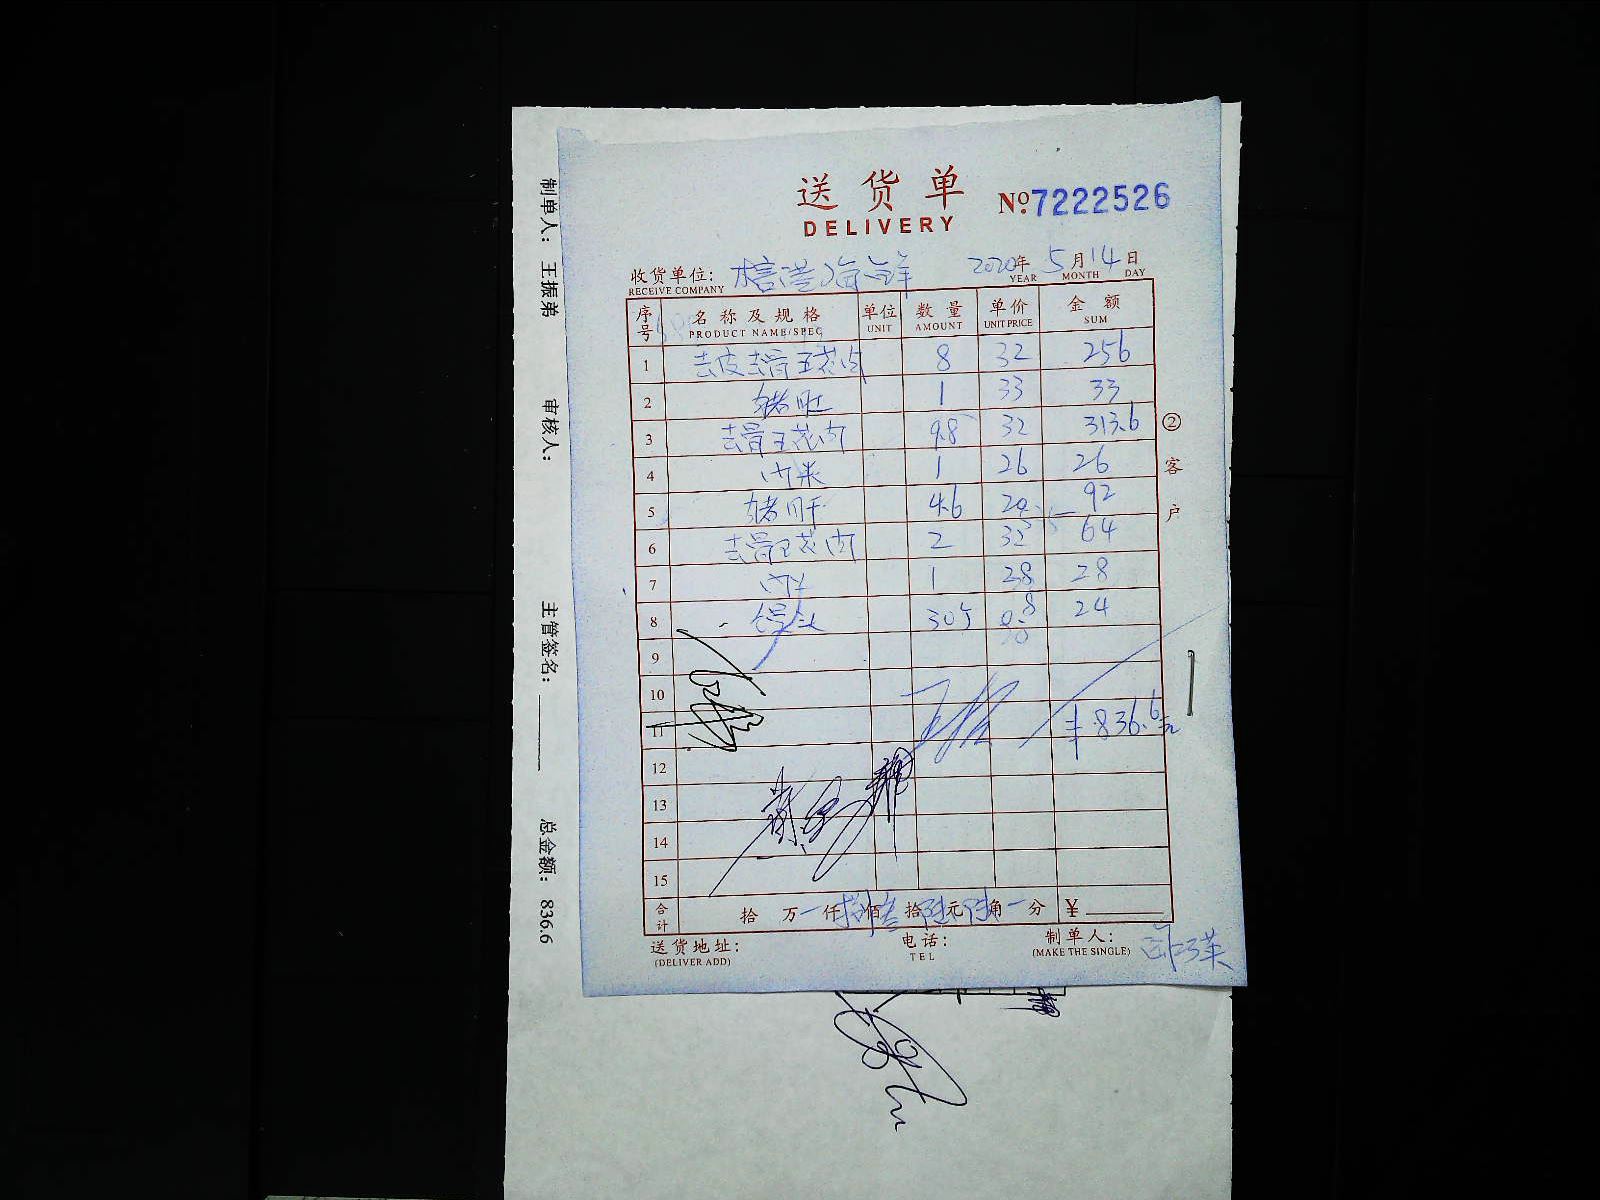 送货单
DELIVERY
№.7222526
收货单位: 海鲜 2020年5月14日
RECEIVE COMPANY YEAR MONTH DAY
序号 名称及规格 单位 数量 单价 金额
PRODUCT NAME/SPEC UNIT AMOUNT UNIT PRICE SUM
1 去皮去骨五花肉 8 32 256
2 猪肚 1 33 33
3 去骨五花肉 9.8 32 313.6
4 肉米 1 26 26
5 猪肝 4.6 20 92
6 去骨五花肉 2 32 64
7 1 28 28
8 馒头 30个 0.8 24
9
10
11 ¥836.6元
12
13
14
15
合计 拾 万 仟 捌佰叁拾陆元陆角 分 ¥
送货地址: 电话: 制单人:
(DELIVER ADD) TEL (MAKE THE SINGLE)
②客户
制单人: 王振弟 审核人: 主管签名: 总金额: 836.6